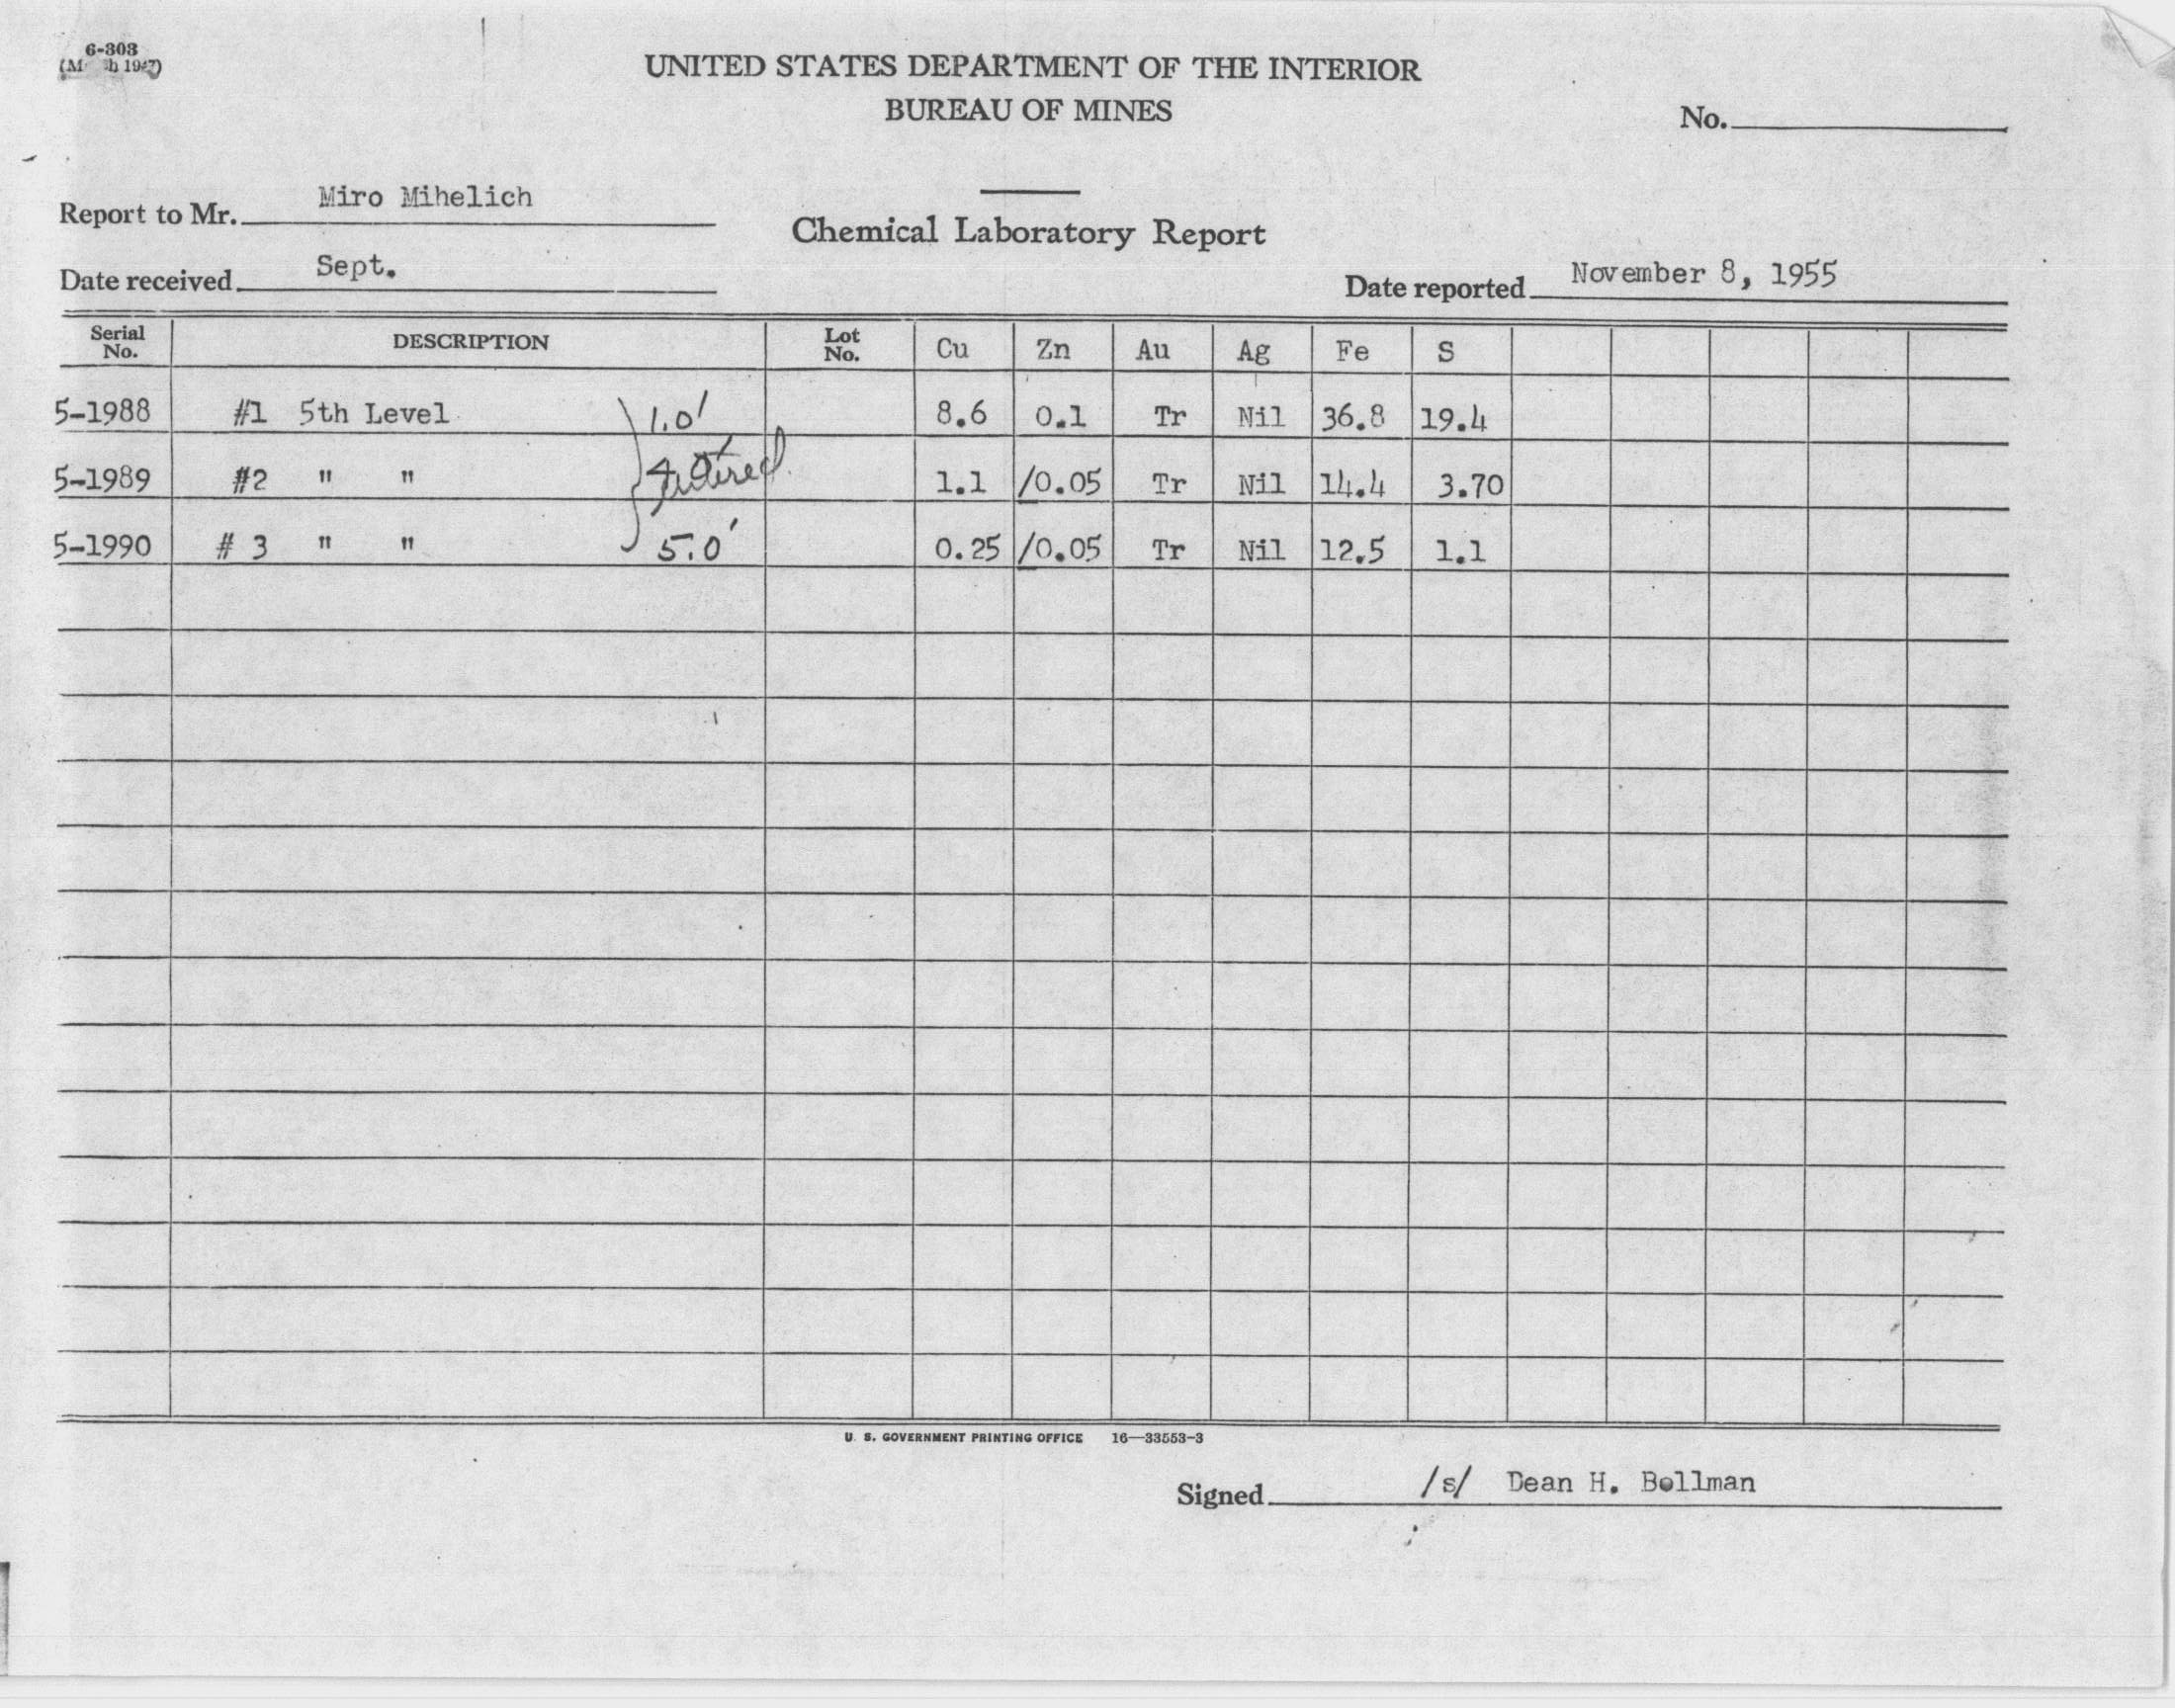 6-303
UNITED STATES DEPARTMENT OF THE INTERIOR
BUREAU OF MINES
No.
Report to Mr. Miro Mihelich
Chemical Laboratory Report
Date received Sept.
Date reported November 8, 1955
Serial No. DESCRIPTION Lot No. Cu Zn Au Ag Fe S
5-1988 #1 5th Level 1.0' 8.6 0.1 Tr Nil 36.8 19.4
5-1989 #2 " " 1.1 /0.05 Tr Nil 14.4 3.70
5-1990 # 3 " " 5.0' 0.25 /0.05 Tr Nil 12.5 1.1
U. S. GOVERNMENT PRINTING OFFICE 16—33553-3
Signed /s/ Dean H. Bollman